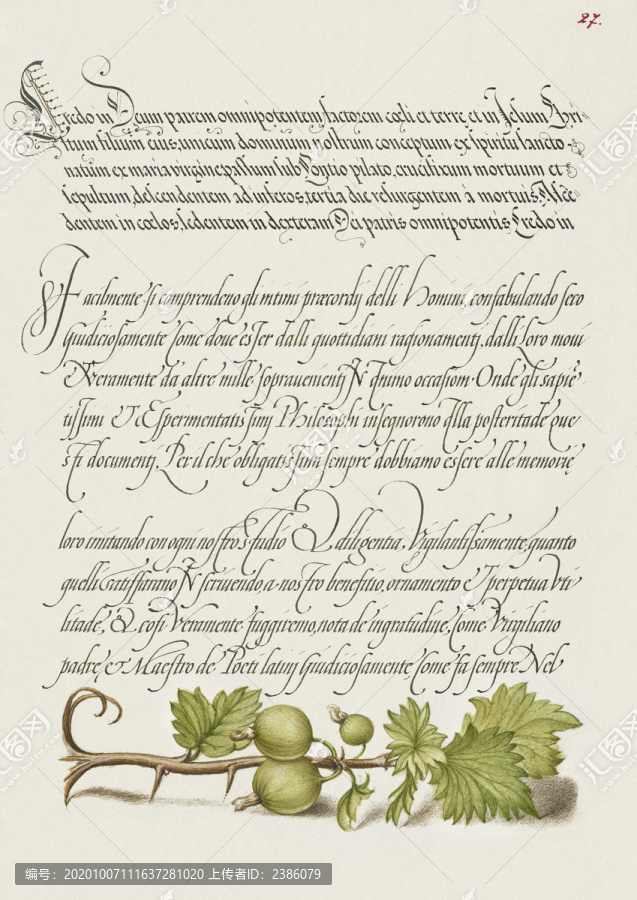 27.
Credo in Deum patrem omnipotentem, factorem cœli et terre, et in Jesum Chri
stum filium eius, unicum dominum nostrum conceptum ex spiritu sancto
natum ex maria virgine, passum sub Pontio pilato, crucifixum mortuum et
sepultum, descendentem ad inferos, tertia die resurgentem à mortuis, Asce
dentem in cœlos, sedentem in dexteram Dei patris omnipotentis, Credo in
Facilmente si comprendeno gli intimi præcordij delli homini, confabulando sero
Giudiciosamente Come doue esser dalli quottidiani ragionamentj, dalli loro moui
Et veramente da altre mille soprauenientj In Animo occasiom. Onde gli sapie
tissimi Et Esperimentatissimj Philosophi insegnorono Alla posteritade que
sti documentj. Per il che obligatissimi sempre dobbiamo essere alle memorie
loro imitando con ogni nostro studio Et diligentia, Vigilantissamente, quanto
quelli satisffarano In scriuendo, a nostro benefitio, ornamento Et perpetua vti
litade, Et cosi veramente fuggiremo, nota de ingratudine, Come Virgiliano
padre, et Maestro de Poeti latinj Giudiciosamente, Come fa sempre Nel
编号：20201007111637281020 上传者ID：2386079